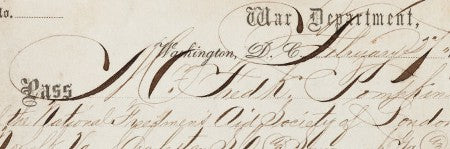 to
War Department,
Washington, D. C. February
Pass Mr. Fredk. Tompkins
of the National Freedmens Aid Society of London